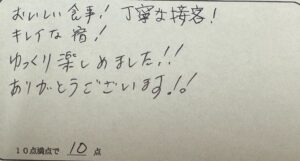 おいしい食事! 丁寧な接客!
キレイな宿!
ゆっくり楽しめました!!
ありがとうございます!!
10点満点で 10 点